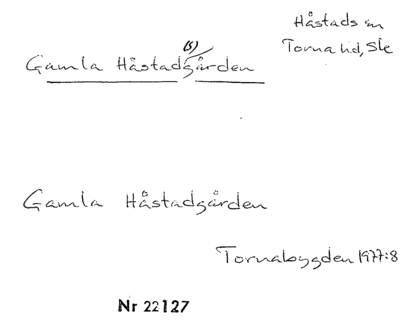 Håstads sn
Torna hd, Ske
(s)
Gamla Håstadgården
Gamla Håstadgården
Tornabygden 1977:8
Nr 22127